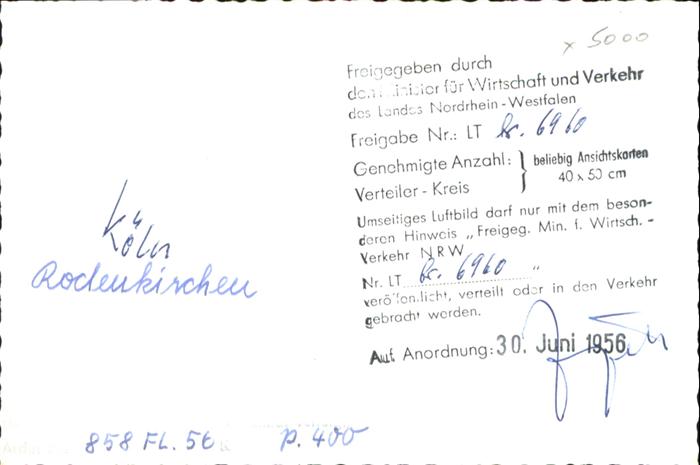 x 5000
Freigegeben durch
den Minister für Wirtschaft und Verkehr
des Landes Nordrhein-Westfalen
Freigabe Nr.: LT br. 6960
Genehmigte Anzahl: } beliebig Ansichtskarten
Verteiler-Kreis 40 x 50 cm
Umseitiges Luftbild darf nur mit dem beson-
deren Hinweis „Freigeg. Min. f. Wirtsch. -
Verkehr NRW
Nr. LT br. 6960 "
veröffentlicht, verteilt oder in den Verkehr
gebracht werden.
Auf Anordnung: 30. Juni 1956
Köln
Rodenkirchen
858 FL. 56 p. 400